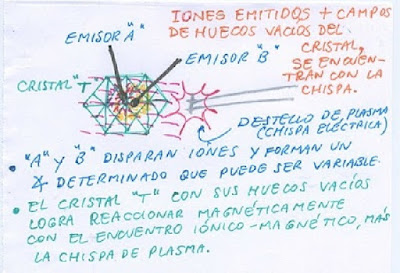 IONES EMITIDOS + CAMPOS
DE HUECOS VACÍOS DEL
CRISTAL,
SE ENCUEN-
TRAN CON LA
CHISPA.
EMISOR "A"
EMISOR "B"
CRISTAL "T"
DESTELLO DE PLASMA
(CHISPA ELÉCTRICA)
• "A" Y "B" DISPARAN IÓNES Y FORMAN UN
∡ DETERMINADO QUE PUEDE SER VARIABLE.
• EL CRISTAL "T" CON SUS HUECOS VACÍOS
LOGRA REACCIONAR MAGNÉTICAMENTE
CON EL ENCUENTRO IÓNICO-MAGNÉTICO, MÁS
LA CHISPA DE PLASMA.